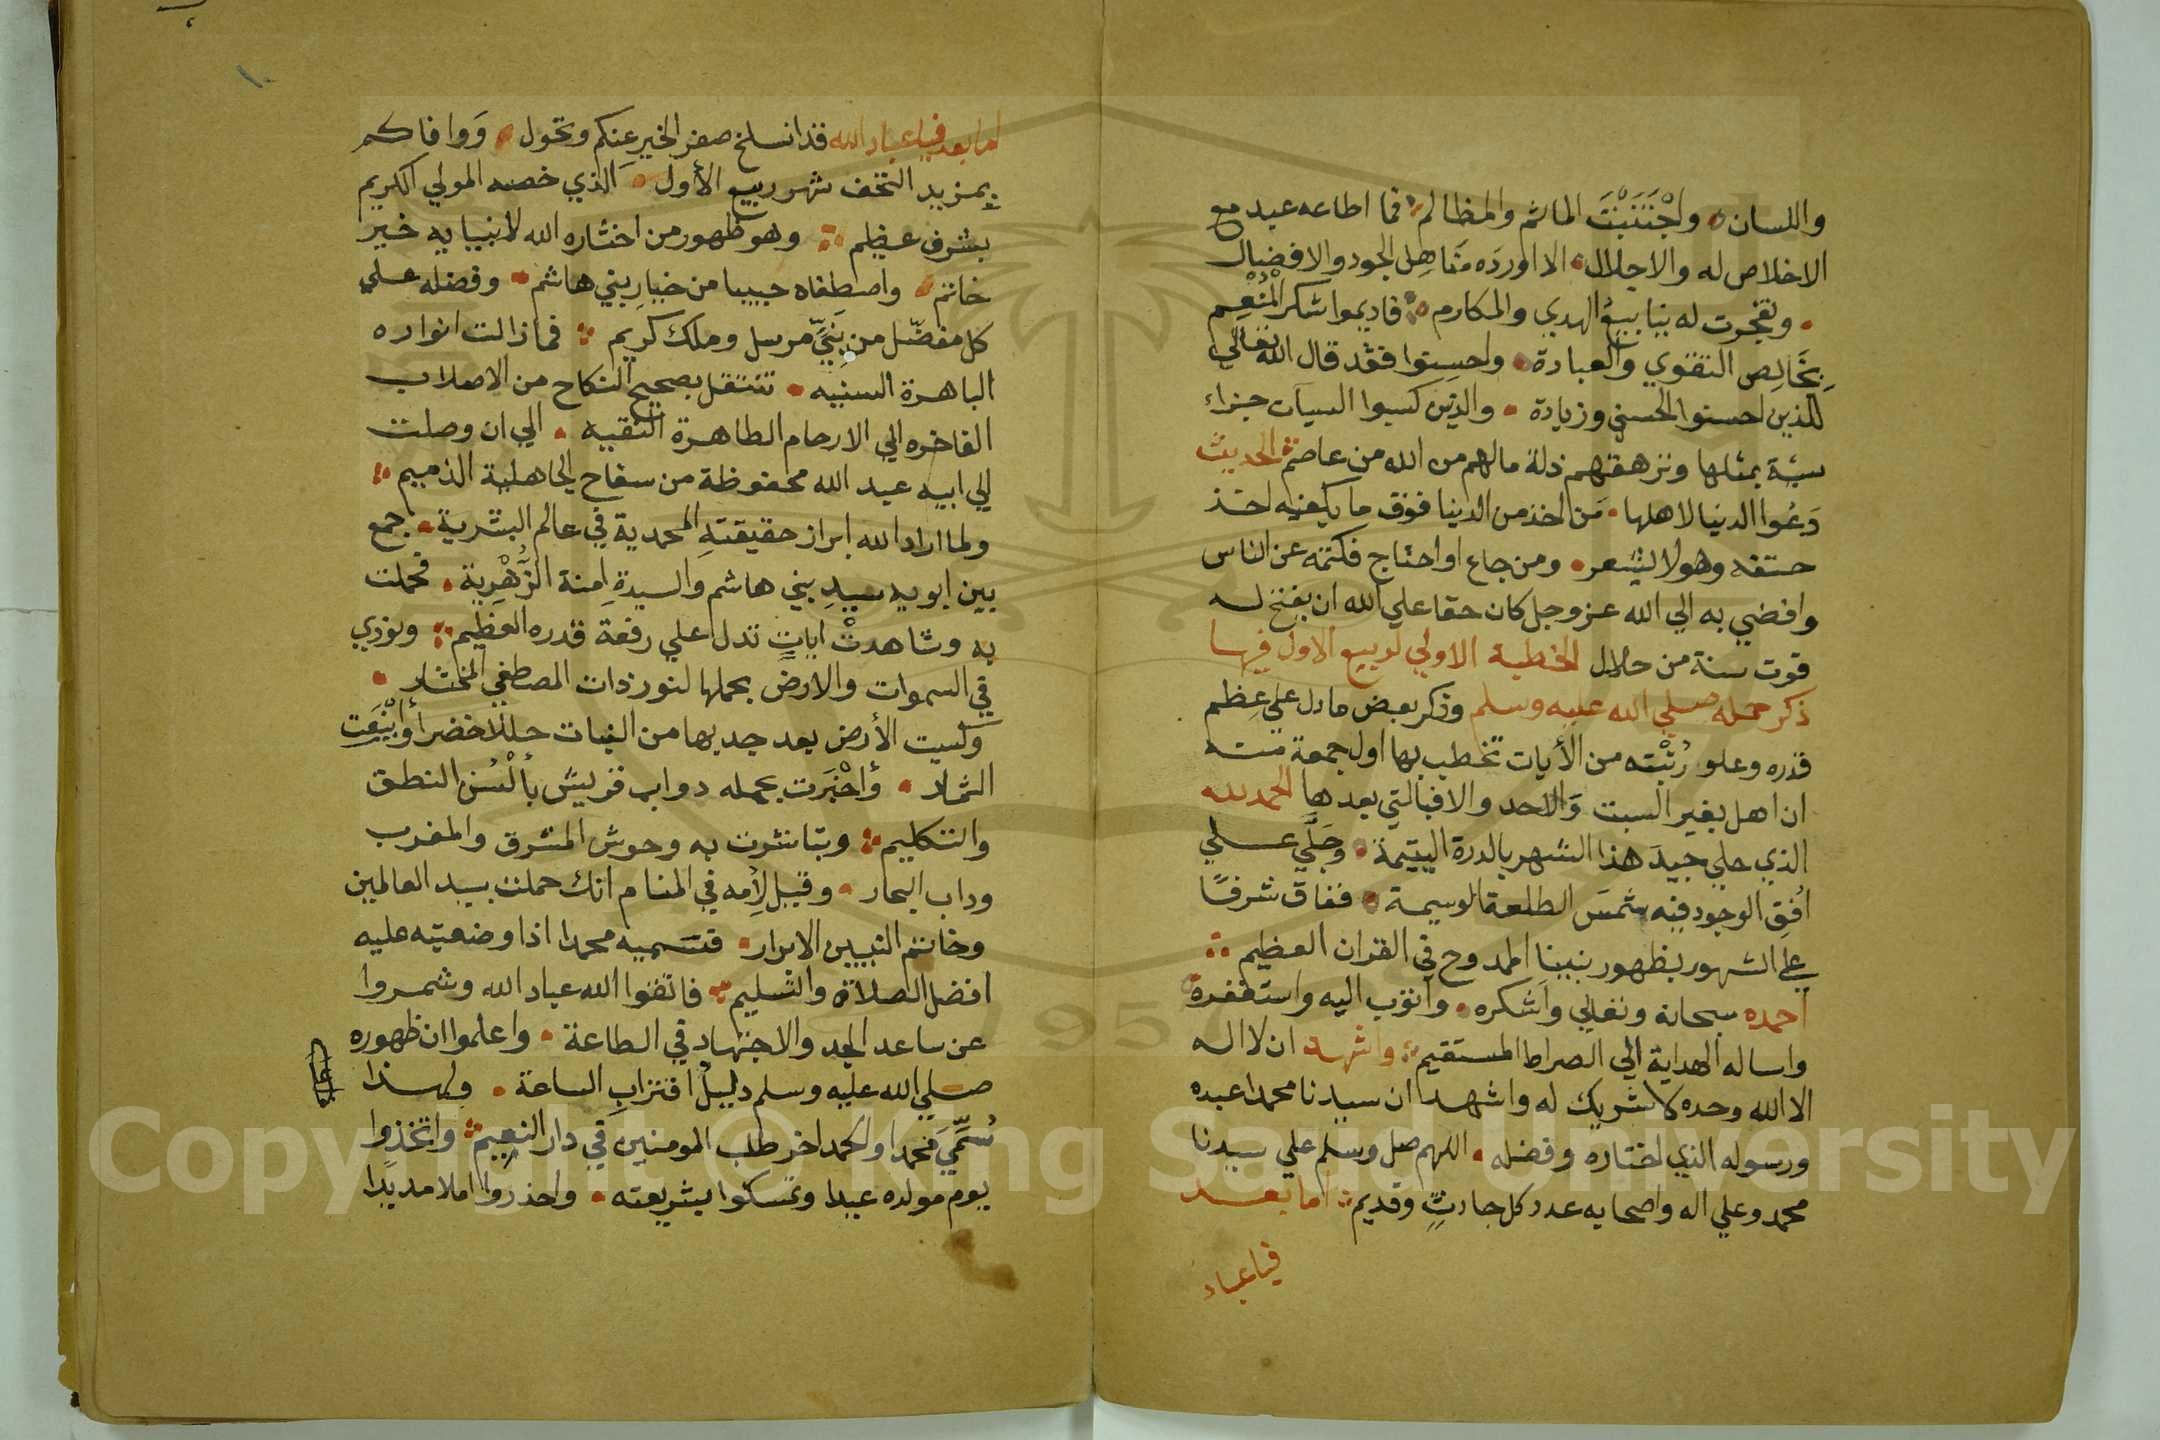 واللسان واجْتَنَبْتَ الماثم والمظالم فما اطاعه عبد مع
الاخلاص له والاجلال الا اورده مناهل الجود والافضال
وتفجرت له ينابيع الهدي والمكارم فاديموا شكر المُنْعِم
بِخَالِص التقوي والعبادة واحسنوا فقد قال الله تعالي
للذين احسنوا الحسني وزيادة والذين كسبوا السيآت جزاء
سيئة بمثلها وترهقهم ذلة مالهم من الله من عاصم الحديث
دَعُوا الدنيا لاهلها مَن اخذ من الدنيا فوق ما يكفيه اخذ
حتفه وهو لا يشعر ومن جاع او احتاج فكتمه عن الناس
وافضي به الي الله عز وجل كان حقا علي الله ان يفتح له
قوت سنة من حلال الخطبة الاولي لربيع الاول فيها
ذكر حمله صلي الله عليه وسلم وذكر بعض ما دل علي عِظم
قدره وعلو رُتْبته من الأيات تخطب بها اول جمعة منه
ان اهل بغير السبت وَالاحد والا فبالتي بعدها الحمد لله
الذي حلي جيدَ هذا الشهر بالدرة اليتيمة وجَلَّي علي
اُفقِ الوجود فيه شمسَ الطلعة الوسيمة ففاق شرفًا
علي الشهور بظهور نبينا الممدوح في القران العظيم
احمده سبحانه وتعالي واشكره واتوب اليه واستغفره
واساله الهداية الي الصراط المستقيم واشهد ان لا اله
الا الله وحده لا شريك له واشهد ان سيدنا محمدا عبده
ورسوله الذي اختاره وفضله اللهم صل وسلم علي سيدنا
محمد وعلي اله واصحابه عدد كل حادثٍ وقديم اما بعد
فيا عباد
١٠
اما بعد فيا عباد الله قد انسلخ صفر الخير عنكم وتحول وَوافاكم
بمزيد التحف شهر ربيع الأول الذي خصه المولي الكريم
بشرف عظيم وهو ظهور من اختاره الله لانبيايه خير
خاتم واصطفاه حبيبا من خيار بني هاشم وفضله علي
كل مفضّل من نبيّ مرسل وملك كريم فما زالت انواره
الباهرة السنيه تنتقل بصحيح النكاح من الاصلاب
الفاخره الي الارحام الطاهرة النقيه الي ان وصلت
الي ابيه عبد الله محفوظة من سفاح الجاهلية الذميم
ولما اراد الله ابراز حقيقتهِ المحمدية في عالم البشرية جمع
بين ابويه سيدِ بني هاشم والسيدةِ امنة الزُهْرية فحملت
به وشاهدتْ اياتٍ تدل علي رفعة قدره العظيم ونودي
في السموات والارض بحملها لنور ذات المصطفي المختار
وكسيت الأرض بعد جدبها من النبات حللا خضرا وأيْنَعت
الثمار وأخْبَرت بحمله دواب قريش بألْسُن النطق
والتكليم وتباشرت به وحوش المشرق والمغرب
وداب البحار وقيل لأمه في المنام انك حملت بسيد العالمين
وخاتم النبيين الابرار فتسميه محمدا اذا وضعتيه عليه
افضل الصلاة والتسليم فاتقوا الله عباد الله وشمروا
عن ساعد الجد والاجتهاد في الطاعة واعلموا ان ظهوره
صلي الله عليه وسلم دليلُ اقتراب الساعة ولهذا
سُمِّيَ محمدا والحمد اخر طلب المومنين في دار النعيم واتخذوا
يوم مولده عيدا وتمسكوا بشريعته واحذروا املا مديدًا